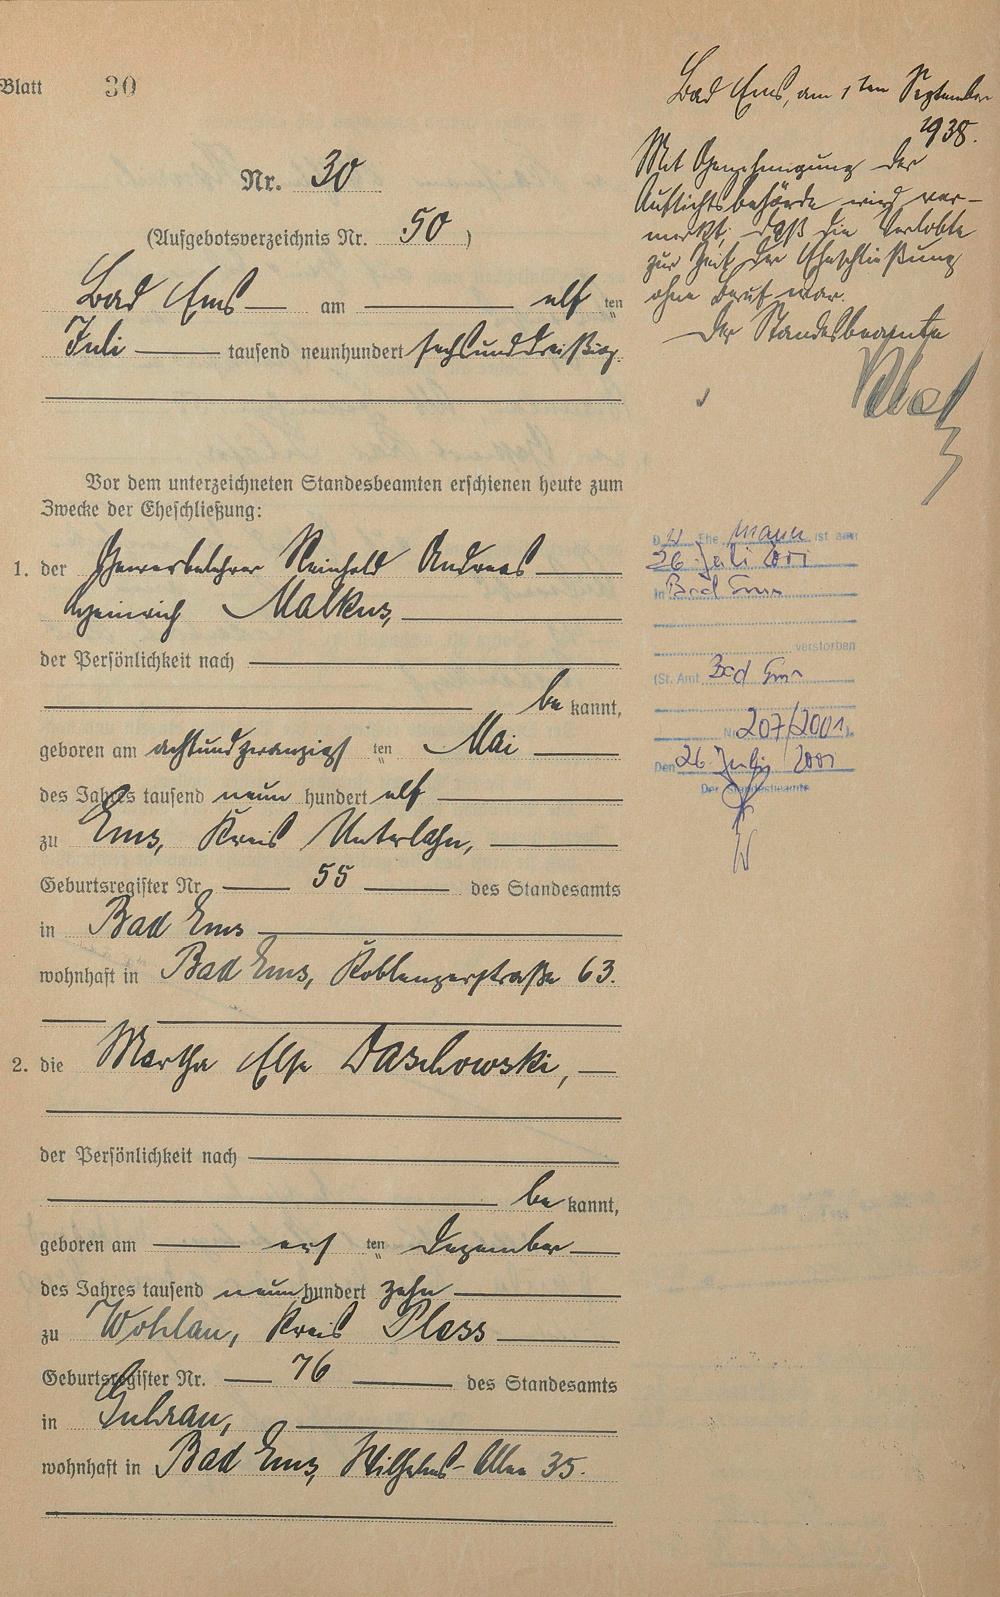 Blatt 30
Nr. 30
(Aufgebotsverzeichnis Nr. 50)
Bad Ems am elf ten
Juli tausend neunhundert sechsunddreißig
Vor dem unterzeichneten Standesbeamten erschienen heute zum
Zwecke der Eheschließung:
1. der Gewerbelehrer Reinhold Andreas
Heinrich Malkus,
der Persönlichkeit nach
be kannt,
geboren am achtundzwanzigst ten Mai
des Jahres tausend neun hundert elf
zu Ems, Kreis Unterlahn,
Geburtsregister Nr. 55 des Standesamts
in Bad Ems
wohnhaft in Bad Ems, Koblenzerstraße 63.
2. die Martha Else Daschowski,
der Persönlichkeit nach
be kannt,
geboren am ten Dezember
des Jahres tausend neun hundert zehn
zu Wohlau, Kreis Pless
Geburtsregister Nr. 76 des Standesamts
in Guhrau,
wohnhaft in Bad Ems, Wilhelms-Allee 35.
Bad Ems, am 1ten September
1938.
Mit Genehmigung der
Aufsichtsbehörde wird ver-
merkt, daß die Verlobte
zur Zeit der Eheschließung
ohne Beruf war.
Der Standesbeamte
D er Ehe mann ist am
26 Juli 2001
in Bad Ems
verstorben
(St. Amt Bad Ems
Nr. 207/2001).
Den 26. Juli 2001
Der Standesbeamte